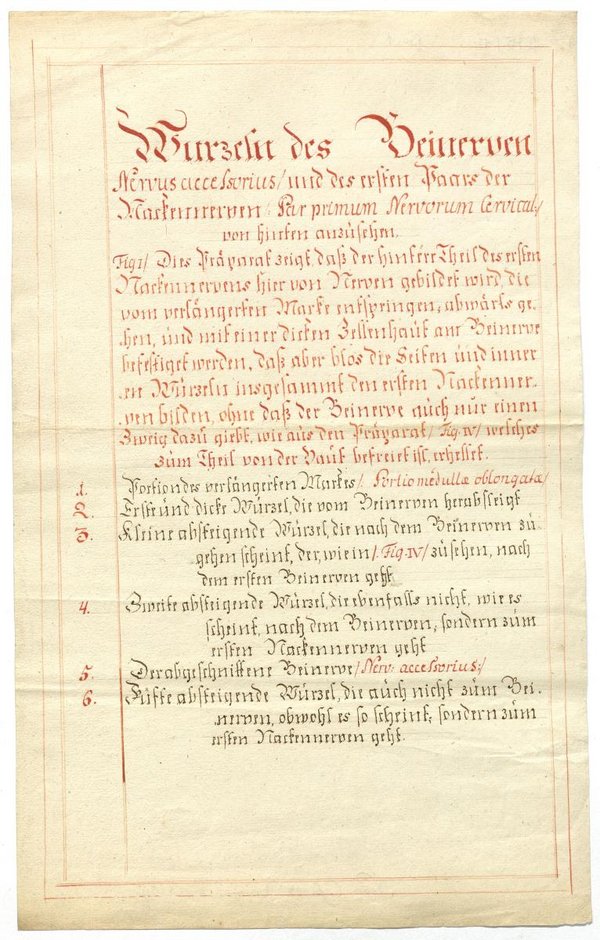 Wurzeln des Beinerven
Nervus accessorius/ und des ersten Paars der
Nackennerven/ Par primum Nervorum Cervical:/
von hinten anzusehen.
Fig I/ Dies Präparat zeigt, daß der hintere Theil des ersten
Nackennervens hier von Nerven gebildet wird, die
vom verlängerten Marke entspringen, abwärts ge-
hen, und mit einer dicken Zellenhaut am Beinerve
befestiget werden, daß aber blos die Seiten und inner-
en Würzeln insgesammt den ersten Nackenner-
ven bilden, ohne daß der Beinerve auch nur einen
Zweig dazu giebt, wie aus den Präparat/ Fig. IV/ welches
zum Theil von der Haut befreiet ist, erhellet.
1. Portion des verlängerten Markes/ Portio medullæ oblongatæ/
2. Erste und dicke Würzel, die vom Beinerven herabsteigt
3. Kleine absteigende Würzel, die nach dem Beinerven zu-
gehen scheint, der, wie in /Fig. IV/ zu sehen, nach
dem ersten Beinerven geht
4. Zweite absteigende Würzel, die ebenfalls nicht, wie es
scheint, nach dem Beinerven, sondern zum
ersten Nackennerven geht
5. Der abgeschnittene Beinerve/ Nerv: accessorius:/
6. Fünfte absteigende Würzel, die auch nicht zum Bei-
nerven, obwohl es so scheint, sondern zum
ersten Nackennerven geht.